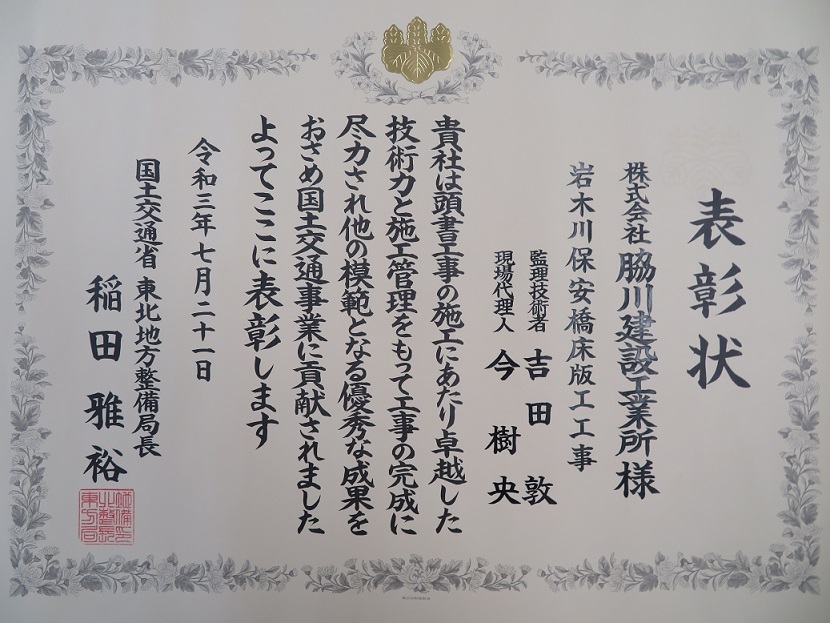 表彰状
株式会社 脇川建設工業所様
岩木川保安橋床版工工事
監理技術者 吉田 敦
現場代理人 今 樹央
貴社は頭書工事の施工にあたり卓越した
技術力と施工管理をもって工事の完成に
尽力され他の模範となる優秀な成果を
おさめ国土交通事業に貢献されました
よってここに表彰します
令和三年七月二十一日
国土交通省 東北地方整備局長
稲田 雅裕